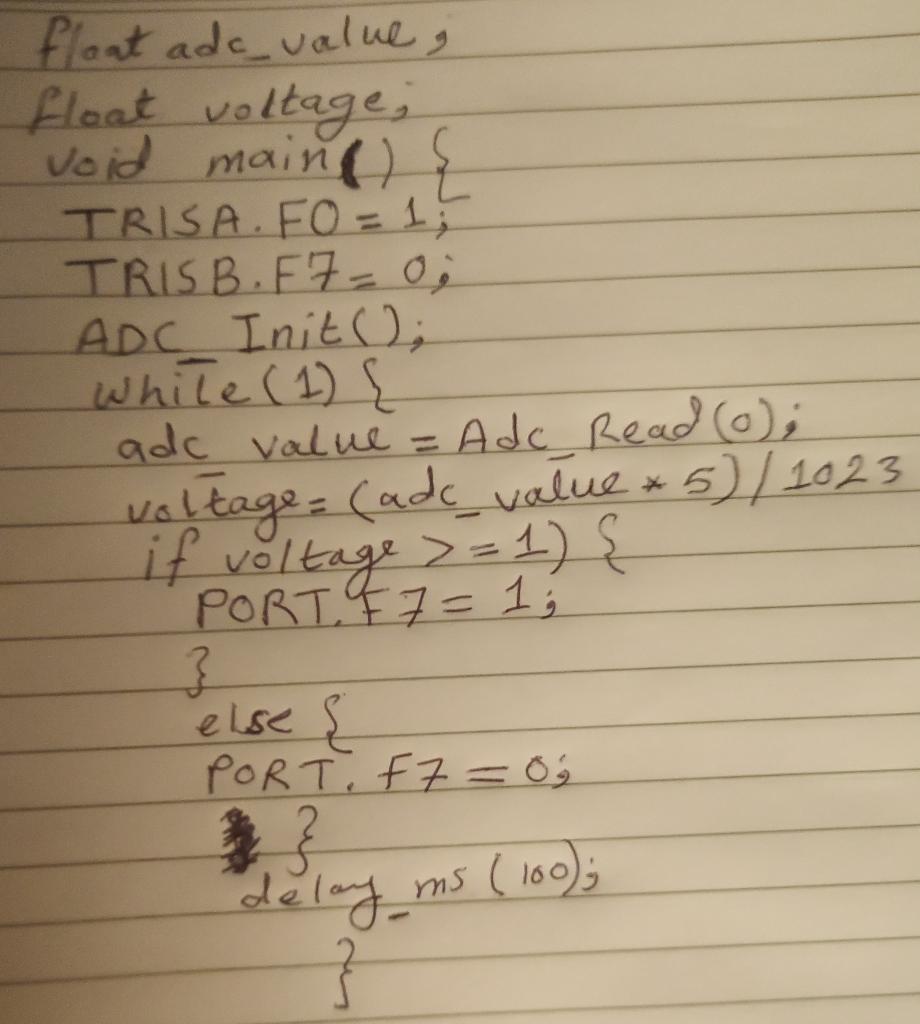 float adc_value;
float voltage;
void main() {
TRISA.F0 = 1;
TRISB.F7 = 0;
ADC_Init();
while(1) {
adc_value = Adc_Read(0);
voltage = (adc_value * 5) / 1023
if voltage >= 1) {
PORT.F7 = 1;
}
else {
PORT.F7 = 0;
}
delay_ms(100);
}